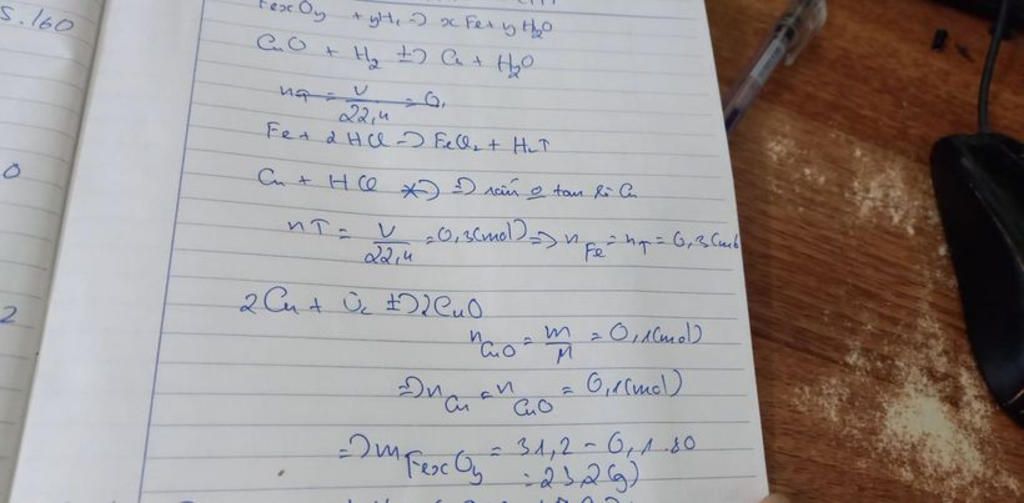 5.160
FexOy + yH2 => xFe + yH2O
CuO + H2 t°=> Cu + H2O
nT = V/22,4 = 0,
Fe + 2HCl => FeCl2 + H2↑
Cu + HCl ≠> => rắn o tan là Cu
nT = V/22,4 = 0,3(mol) => nFe = nT = 0,3(mol
0
2Cu + O2 t°=> 2CuO
2
nCuO = m/M = 0,1(mol)
=> nCu = nCuO = 0,1(mol)
=> mFexOy = 31,2 - 0,1.80
= 23,2(g)